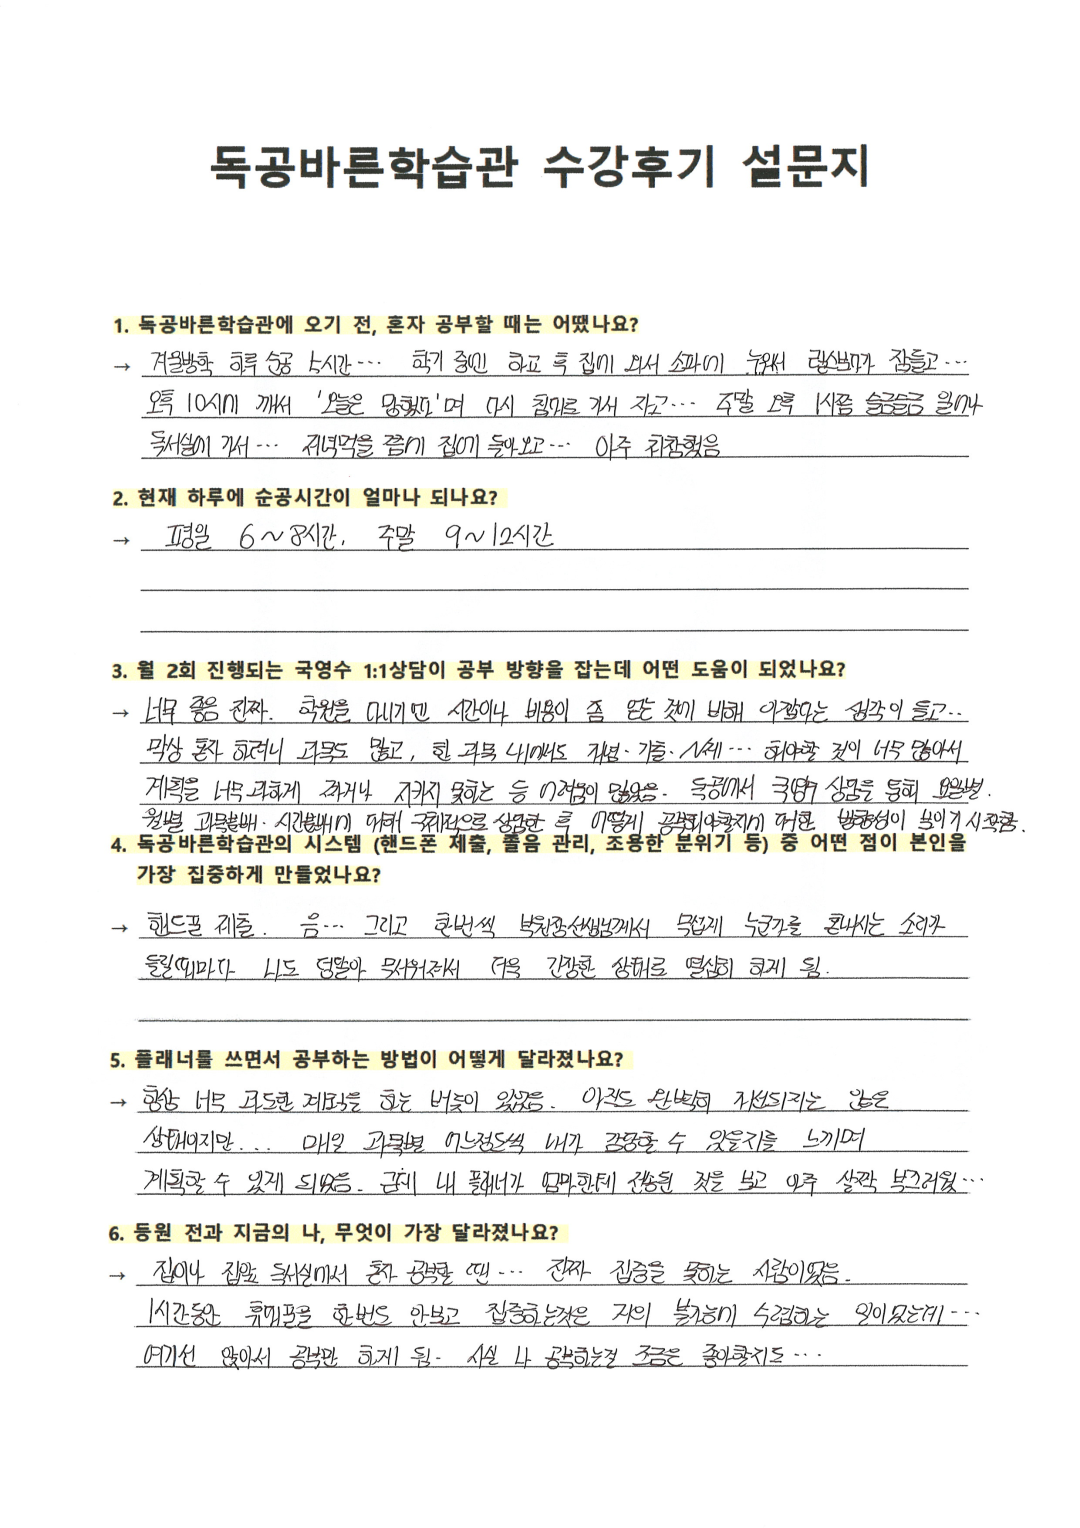 독공바른학습관 수강후기 설문지
1. 독공바른학습관에 오기 전, 혼자 공부할 때는 어땠나요?
→ 겨울방학 하루 순공 5시간… 학기 중엔 하교 후 집에 와서 소파에 누워서 잠들고…
오후 10시에 깨서 '오늘은 망했다'며 다시 침대로 가서 자고… 주말 오후 1시쯤 슬금슬금 일어나
독서실에 가서… 저녁먹을 쯤에 집에 돌아오고… 아주 처참했음
2. 현재 하루에 순공시간이 얼마나 되나요?
→ 평일 6~8시간, 주말 9~12시간
3. 월 2회 진행되는 국영수 1:1상담이 공부 방향을 잡는데 어떤 도움이 되었나요?
→ 너무 좋음 진짜. 학원을 다니기엔 시간이나 비용이 좀 얻는 것에 비해 아깝다는 생각이 들고…
막상 혼자 하려니 과목도 많고, 한 과목 내에서도 개념·기출·N제… 해야할 것이 너무 많아서
계획을 너무 과하게 짜거나 지키지 못하는 등 어려움이 많았음. 독공에서 국영수 상담을 통해 요일별·
월별 과목분배·시간분배에 대해 구체적으로 상담한 후 어떻게 공부해야할지에 대한 방향성이 보이기 시작함.
4. 독공바른학습관의 시스템 (핸드폰 제출, 졸음 관리, 조용한 분위기 등) 중 어떤 점이 본인을
가장 집중하게 만들었나요?
→ 핸드폰 제출. 음… 그리고 한번씩 부원장선생님께서 무섭게 누군가를 혼내시는 소리가
들릴때마다 나도 덩달아 무서워져서 더욱 긴장한 상태로 열심히 하게 됨.
5. 플래너를 쓰면서 공부하는 방법이 어떻게 달라졌나요?
→ 항상 너무 과도한 계획을 하는 버릇이 있었음. 아직도 완벽히 개선되지는 않은
상태이지만... 매일 과목별 어느정도씩 내가 감당할 수 있을지를 느끼며
계획할 수 있게 되었음. 근데 내 플래너가 엄마한테 전송된 것을 보고 아주 살짝 부끄러웠…
6. 등원 전과 지금의 나, 무엇이 가장 달라졌나요?
→ 집이나 집앞 독서실에서 혼자 공부할 땐… 진짜 집중을 못하는 사람이었음.
1시간동안 휴대폰을 한번도 안보고 집중하는것은 거의 불가능에 수렴하는 일이었는데…
여기선 앉아서 공부만 하게 됨. 사실 나 공부하는걸 조금은 좋아할지도…